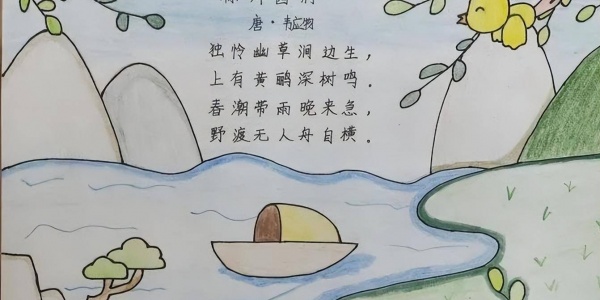 唐·韦应物
独怜幽草涧边生，
上有黄鹂深树鸣。
春潮带雨晚来急，
野渡无人舟自横。